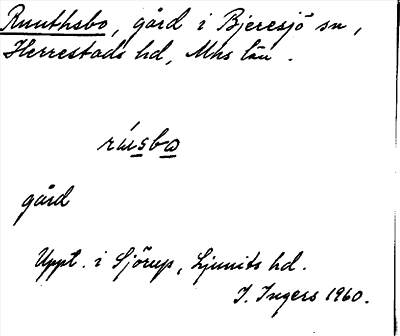 Ruuthsbo, gård i Bjeresjö sn,
Herrestads hd, Mhs län.
rúsbo
gård
Uppt. i Sjörup, Ljunits hd.
I. Ingers 1960.